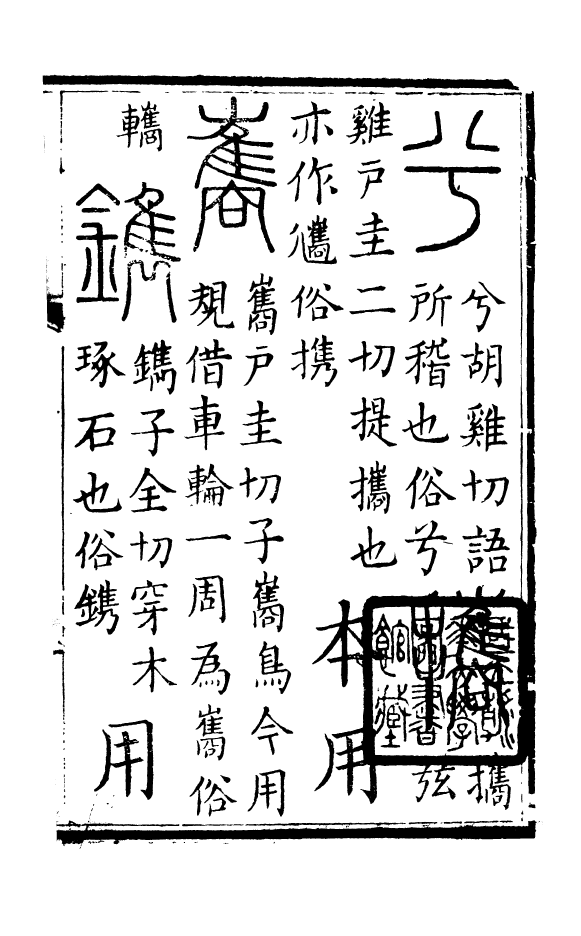 兮
兮胡雞切語
所稽也俗兮
攜
弦
雞戶圭二切提攜也
亦作儶俗携
本用
巂
巂戶圭切子巂鳥今用
規借車輪一周為巂俗
鐫
鐫子全切穿木
琢石也俗鎸
用